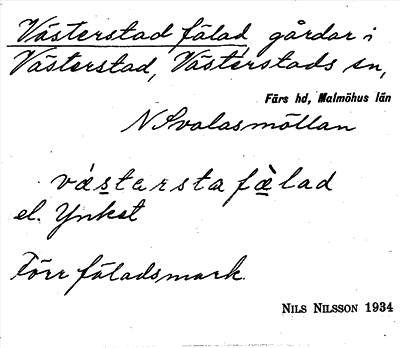 Västerstad fälad gårdar i
Västerstad, Västerstads sn,
Färs hd, Malmöhus län
N Svalasmöllan
vástersta fàlad
el. Ynket
Förr fäladsmark.
NILS NILSSON 1934